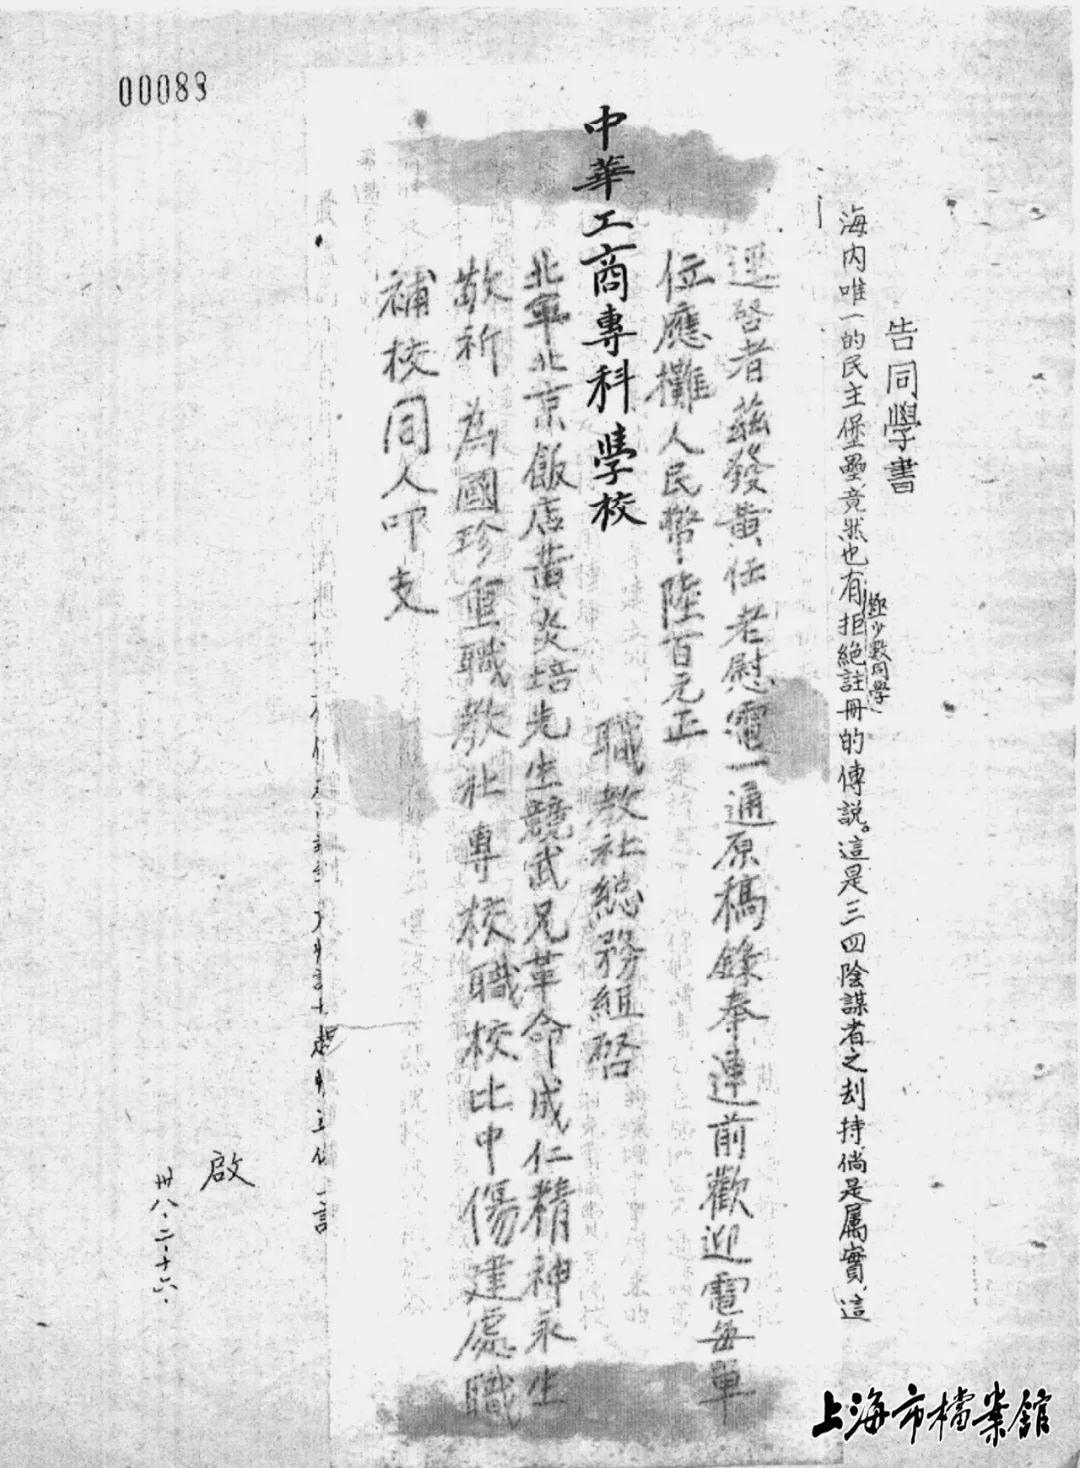 00083
告同學書
海内唯一的民主堡壘竟然也有極少數同學拒絕註冊的傳説。這是三四陰謀者之刦持,倘是属實,這
逕啓者茲發黄任老慰電一通原稿錄奉連前歡迎電每單
位應攤人民幣陸百元正
職教社総務組啓
中華工商專科學校
北平北京飯店黄炎培先生競武兄革命成仁精神永生
敬祈 為國珍重職教社專校職校比中傷建處職
補校同人叩支
啟
卅八.二.十六.
上海市檔案館